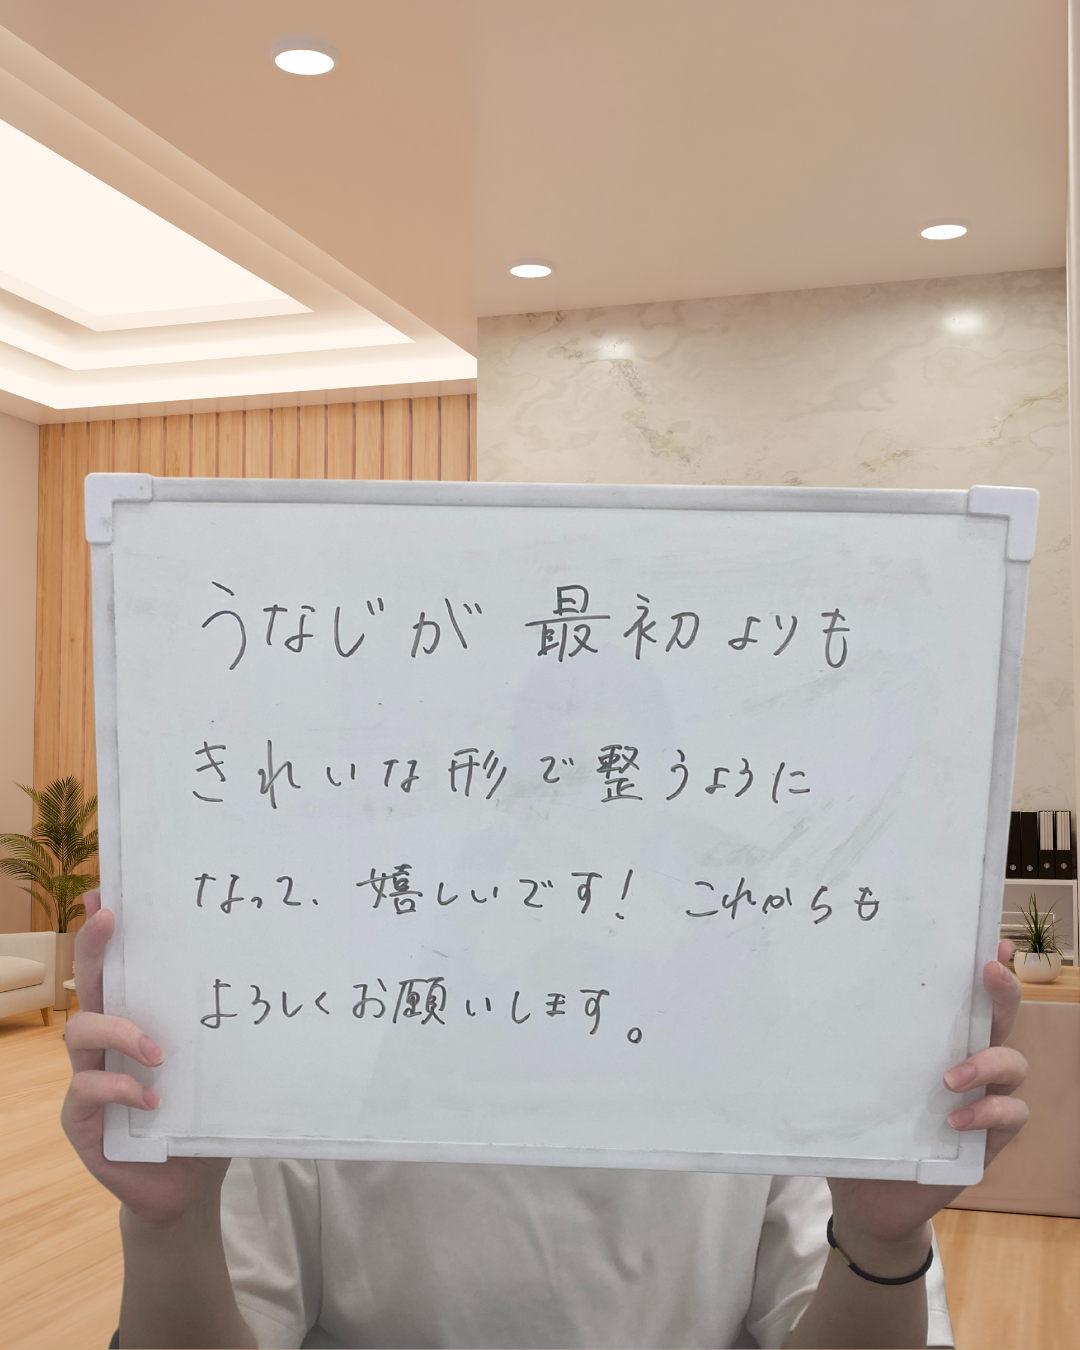 うなじが最初よりも
きれいな形で整うように
なって、嬉しいです！ これからも
よろしくお願いします。